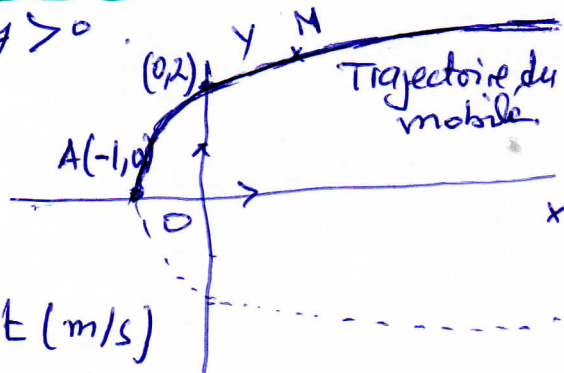 y > 0 .
Y M
(0,2)
Trajectoire du
mobile.
A(-1,0)
O
x
t (m/s)